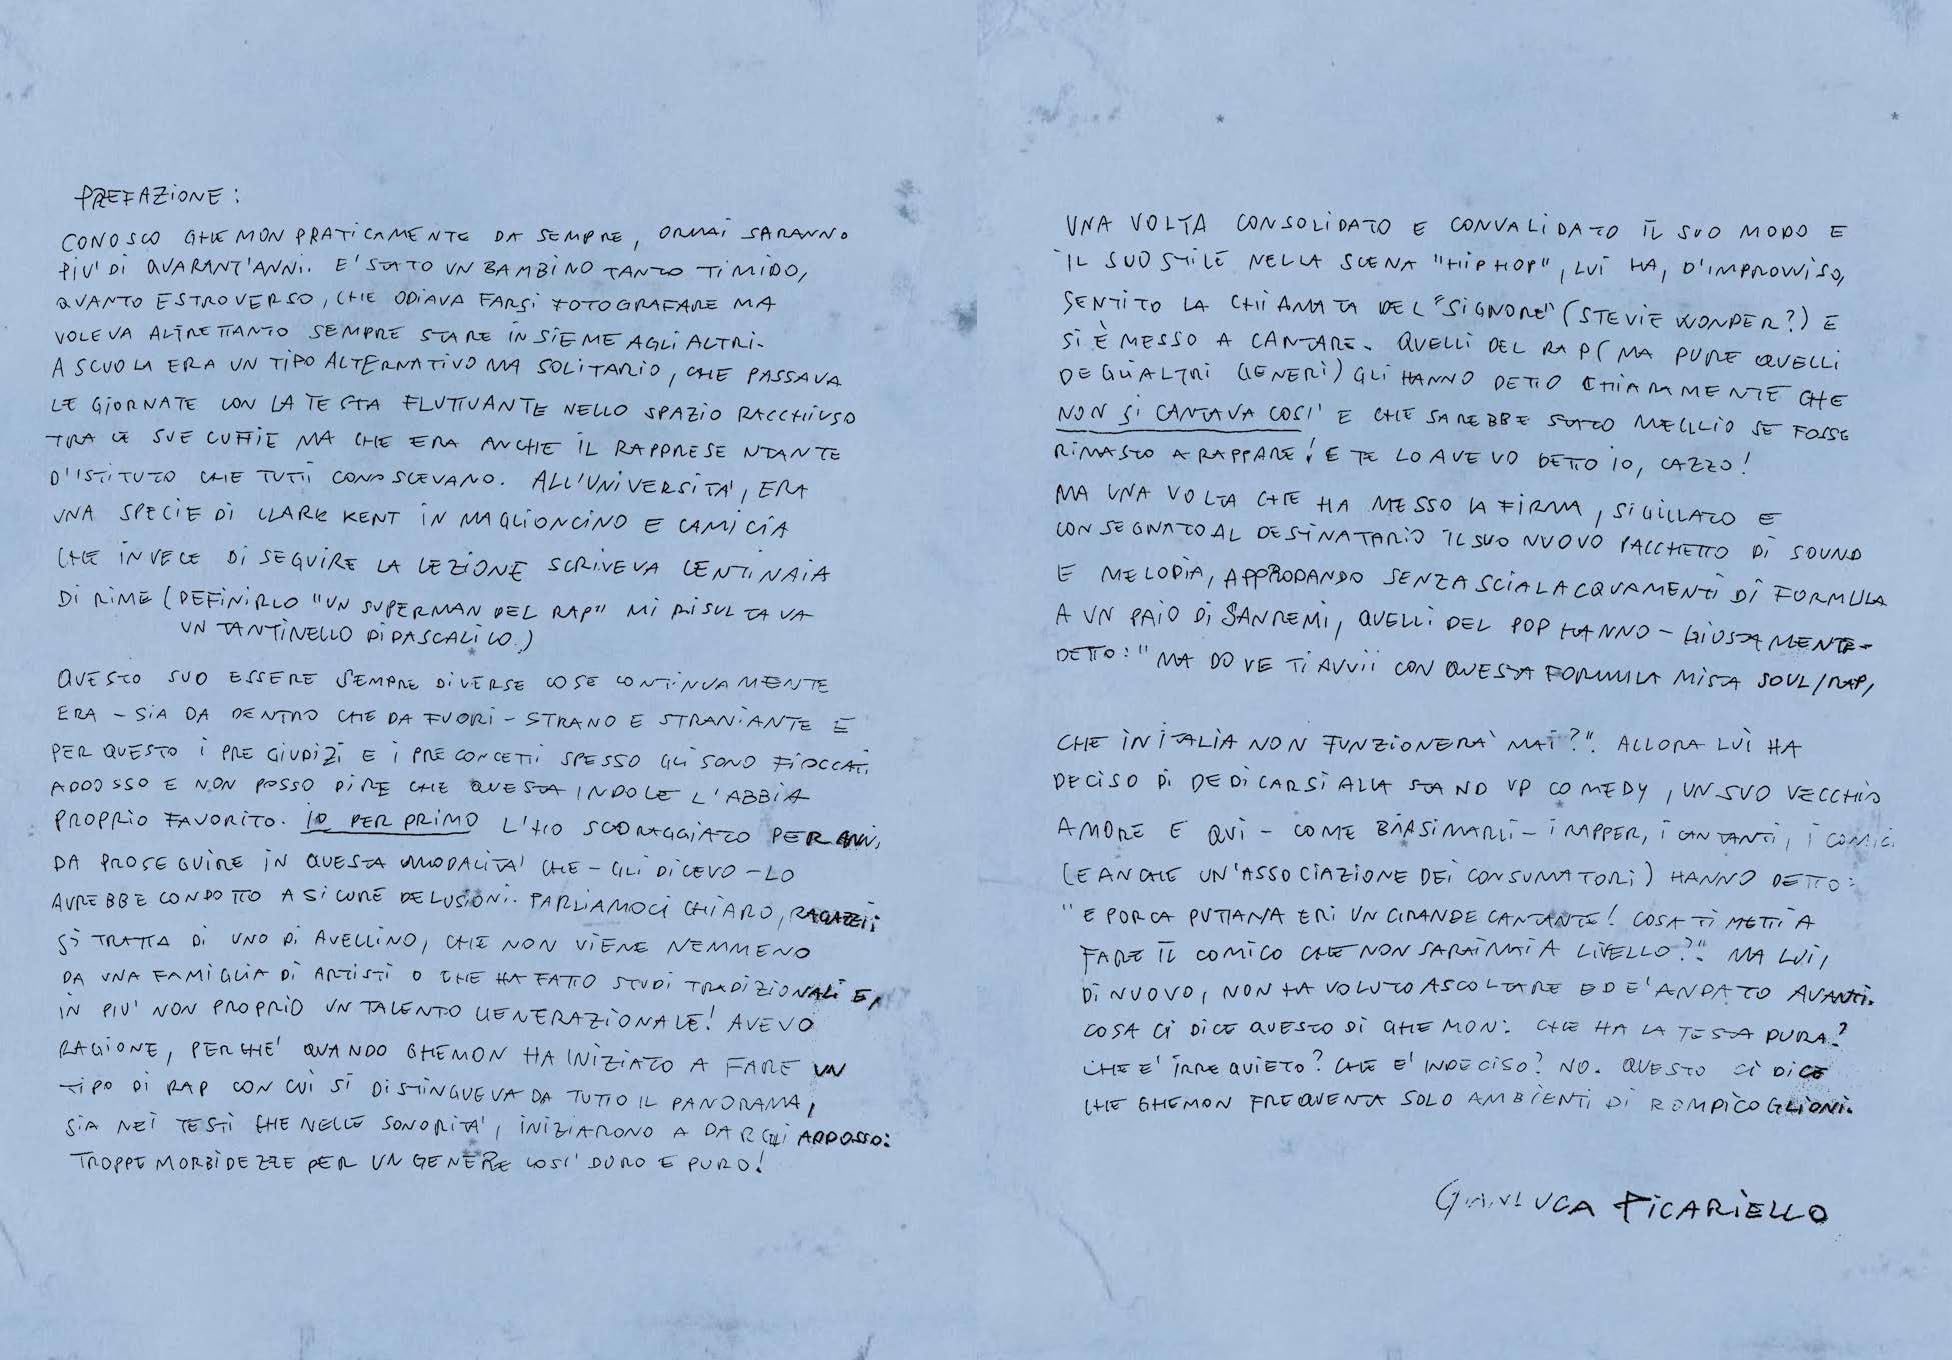 PREFAZIONE:
CONOSCO GHEMON PRATICAMENTE DA SEMPRE, ORMAI SARANNO
PIU' DI QUARANT'ANNI. E' STATO UN BAMBINO TANTO TIMIDO,
QUANTO ESTROVERSO, CHE ODIAVA FARSI FOTOGRAFARE MA
VOLEVA ALTRETTANTO SEMPRE STARE INSIEME AGLI ALTRI.
A SCUOLA ERA UN TIPO ALTERNATIVO MA SOLITARIO, CHE PASSAVA
LE GIORNATE CON LA TESTA FLUTTUANTE NELLO SPAZIO RACCHIUSO
TRA LE SUE CUFFIE MA CHE ERA ANCHE IL RAPPRESENTANTE
D'ISTITUTO CHE TUTTI CONOSCEVANO. ALL'UNIVERSITA', ERA
UNA SPECIE DI CLARK KENT IN MAGLIONCINO E CAMICIA
CHE INVECE DI SEGUIRE LA LEZIONE SCRIVEVA CENTINAIA
DI RIME (DEFINIRLO "UN SUPERMAN DEL RAP" MI RISULTAVA
UN TANTINELLO DIDASCALICO.)
QUESTO SUO ESSERE SEMPRE DIVERSE COSE CONTINUAMENTE
ERA - SIA DA DENTRO CHE DA FUORI - STRANO E STRANIANTE E
PER QUESTO I PREGIUDIZI E I PRECONCETTI SPESSO GLI SONO FIOCCATI
ADDOSSO E NON POSSO DIRE CHE QUESTA INDOLE L'ABBIA
PROPRIO FAVORITO. IO PER PRIMO L'HO SCORAGGIATO PER ANNI,
DA PROSEGUIRE IN QUESTA MODALITA' CHE - GLI DICEVO - LO
AVREBBE CONDOTTO A SICURE DELUSIONI. PARLIAMOCI CHIARO, RAGAZZI:
SI TRATTA DI UNO DI AVELLINO, CHE NON VIENE NEMMENO
DA UNA FAMIGLIA DI ARTISTI O CHE HA FATTO STUDI TRADIZIONALI E,
IN PIU' NON PROPRIO UN TALENTO GENERAZIONALE! AVEVO
RAGIONE, PERCHE' QUANDO GHEMON HA INIZIATO A FARE UN
TIPO DI RAP CON CUI SI DISTINGUEVA DA TUTTO IL PANORAMA,
SIA NEI TESTI CHE NELLE SONORITA', INIZIARONO A DARGLI ADDOSSO:
TROPPE MORBIDEZZE PER UN GENERE COSI' DURO E PURO!
UNA VOLTA CONSOLIDATO E CONVALIDATO IL SUO MODO E
IL SUO STILE NELLA SCENA "HIPHOP", LUI HA, D'IMPROVVISO,
SENTITO LA CHIAMATA DEL "SIGNORE" (STEVIE WONDER?) E
SI È MESSO A CANTARE. QUELLI DEL RAP (MA PURE QUELLI
DEGLI ALTRI GENERI) GLI HANNO DETTO CHIARAMENTE CHE
NON SI CANTAVA COSI' E CHE SAREBBE STATO MEGLIO SE FOSSE
RIMASTO A RAPPARE! E TE LO AVEVO DETTO IO, CAZZO!
MA UNA VOLTA CHE HA MESSO LA FIRMA, SIGILLATO E
CONSEGNATO AL DESTINATARIO IL SUO NUOVO PACCHETTO DI SOUND
E MELODIA, APPRODANDO SENZA SCIALACQUAMENTI DI FORMULA
A UN PAIO DI SANREMI, QUELLI DEL POP HANNO - GIUSTAMENTE -
DETTO: "MA DOVE TI AVVII CON QUESTA FORMULA MISTA SOUL/RAP,
CHE IN ITALIA NON FUNZIONERA' MAI?". ALLORA LUI HA
DECISO DI DEDICARSI ALLA STAND UP COMEDY, UN SUO VECCHIO
AMORE E QUI - COME BIASIMARLI - I RAPPER, I CANTANTI, I COMICI
(E ANCHE UN'ASSOCIAZIONE DEI CONSUMATORI) HANNO DETTO:
"E PORCA PUTTANA ERI UN GRANDE CANTANTE! COSA TI METTI A
FARE IL COMICO CHE NON SARAI MAI A LIVELLO?" MA LUI,
DI NUOVO, NON HA VOLUTO ASCOLTARE ED E' ANDATO AVANTI.
COSA CI DICE QUESTO DI GHEMON: CHE HA LA TESTA DURA?
CHE E' IRREQUIETO? CHE E' INDECISO? NO. QUESTO CI DICE
CHE GHEMON FREQUENTA SOLO AMBIENTI DI ROMPICOGLIONI.
GIANLUCA PICARIELLO